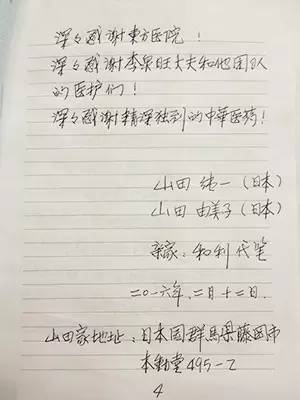 深々感谢东方医院！
深々感谢李泉旺大夫和他团队
的医护们！
深々感谢精深独到的中華医药！
山田 純一（日本）
山田 由美子（日本）
亲家：和利 代笔
二〇一六年、二月十二日.
山田家地址：日本国群馬県藤岡市
本動堂495-2
4